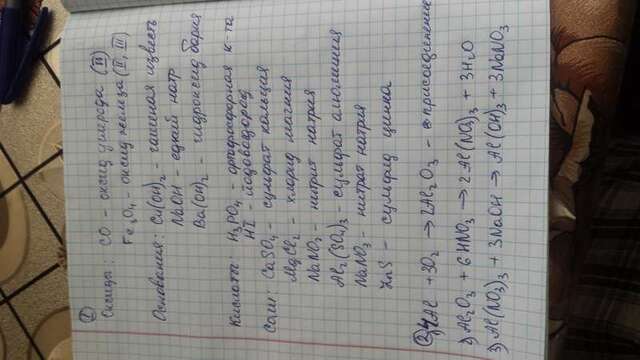 ①
Оксиды: CO - оксид углерода (II)
Fe₃O₄ - оксид железа (II, III)
Основания: Ca(OH)₂ - гашеная известь
NaOH - едкий натр
Ba(OH)₂ - гидроксид бария
Кислоты: H₃PO₄ - ортофосфорная к-та
HI - йодоводород
Соли: CaSO₄ - сульфат кальция
MgCl₂ - хлорид магния
NaNO₃ - нитрат натрия
Al₂(SO₄)₃ - сульфат алюминия
NaNO₃ - нитрат натрия
ZnS - сульфид цинка
② 4Al + 3O₂ → 2Al₂O₃ - присоединение
Al₂O₃ + 6HNO₃ → 2Al(NO₃)₃ + 3H₂O
3) Al(NO₃)₃ + 3NaOH → Al(OH)₃ + 3NaNO₃